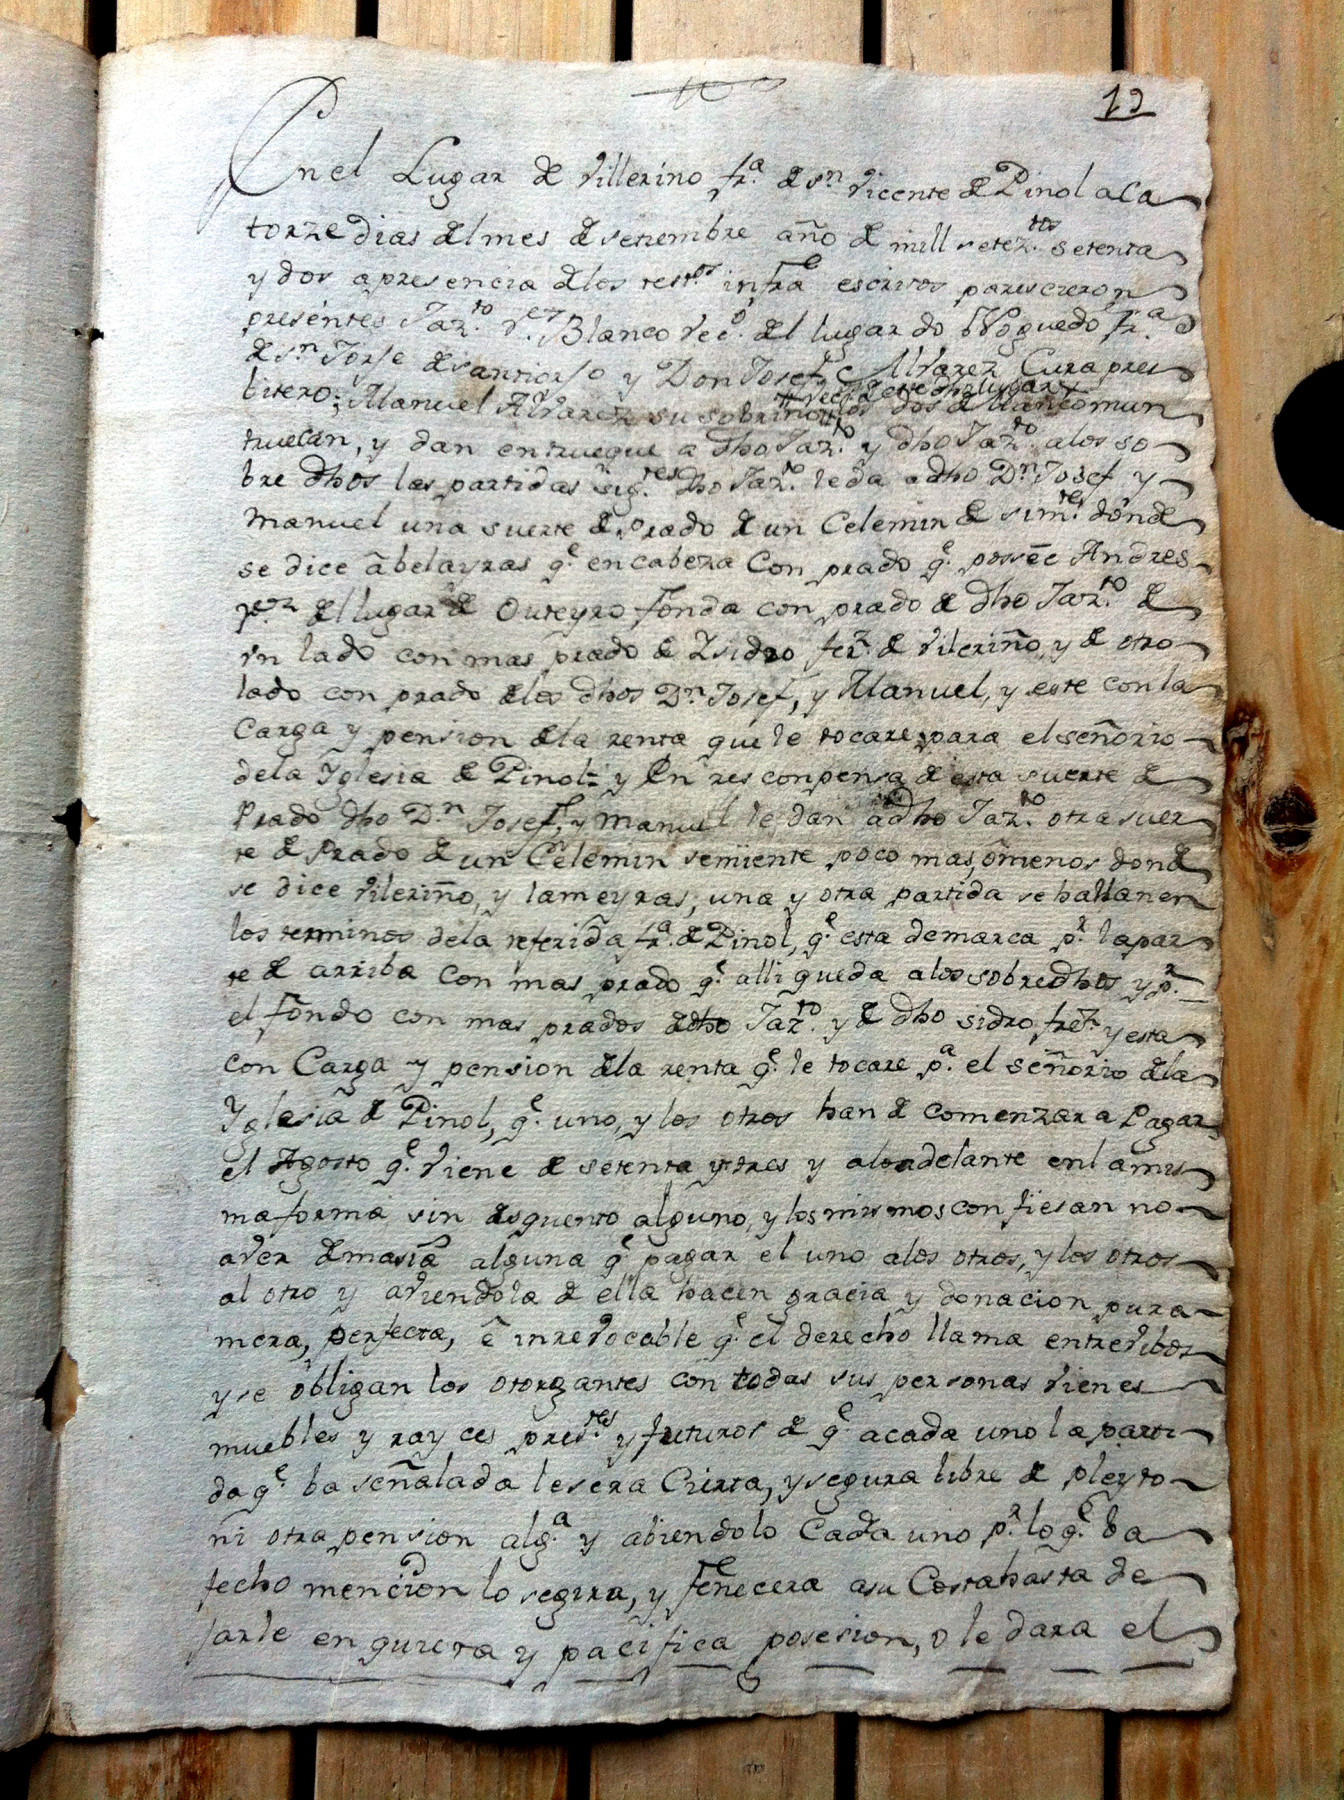 12
En el Lugar de Villerino fra. de Sn. Vicente de Pinol a Ca
torze dias del mes de setiembre año de mill setezos. setenta
y dos a presencia de los testos. infra escritos parescieron
presentes Jazto. Blanco veco. del lugar do fra.
de Sn. Jorse de santiorso y Don Josef Alvarez Cura pres
vitero; Manuel Alvarez su sobrino vecs. de este dho lugar los dos de Mancomun
truecan, y dan entrueque a dho Jazto. y dho Jazto. a los so
bre dhos las partidas sigtes. dho Jazto. le da a dho Dn. Josef y
Manuel una suerte de Prado de un Celemin de simte. donde
se dice abelayras qe. encabeza Con prado qe. posseé Andres
del lugar de Outeyro fonda con prado de dho Jazto. de
Un lado con mas prado de Ysidro ferz. de Vileriño, y de otro
lado con prado de los dhos Dn. Josef, y Manuel, y este con la
Carga y pension de la renta que le tocare para el señorio
de la Yglesia de Pinol= y En resconpensa de esta suerte de
Prado dho Dn. Josef, y Manuel le dan a dho Jazto. otra suer
te de Prado de un Celemin semiente poco mas, o menos donde
se dice Vileriño, y lameyras, una y otra partida se hallan en
los terminos de la referida fra. de Pinol, qe. esta demarca pr. la par
te de arriba con mas prado qe. alli queda a los sobredhos y pr.
el fondo con mas prados de dho Jazto. y de dho sidro frez. y esta
con Carga y pension de la renta qe. le tocare pa. el señorio de la
Yglesia de Pinol, qe. uno, y los otros han de comenzar a Pagar
el Agosto qe. viene de setenta y tres y a lo adelante en la mis
ma forma sin desquento alguno, y los mismos confiesan no
aver demasia alguna qe. pagar el uno a los otros, y los otros
al otro y aviendola de ella hacen gracia y donacion pura
mera, perfecta, e inrevocable qe. el derecho llama entrevibos
y se obligan los otorgantes con todas sus personas vienes
muebles y rayces prestes. y futuros de qe. a cada uno la parti
da qe. ba señalada le sera Cierta, y segura libre de pleyto
ni otra pension alga. y abiendolo Cada uno pr. lo qe. ba
fecho mencion lo segira, y fenecera a su Costa hasta de
jarle en quieta y pacifica posesion, o le dara el